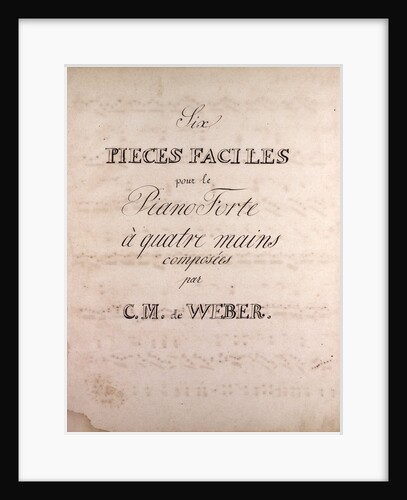 Six
PIECES FACILES
pour le
Piano Forte
à quatre mains
composées
par
C. M. de WEBER.